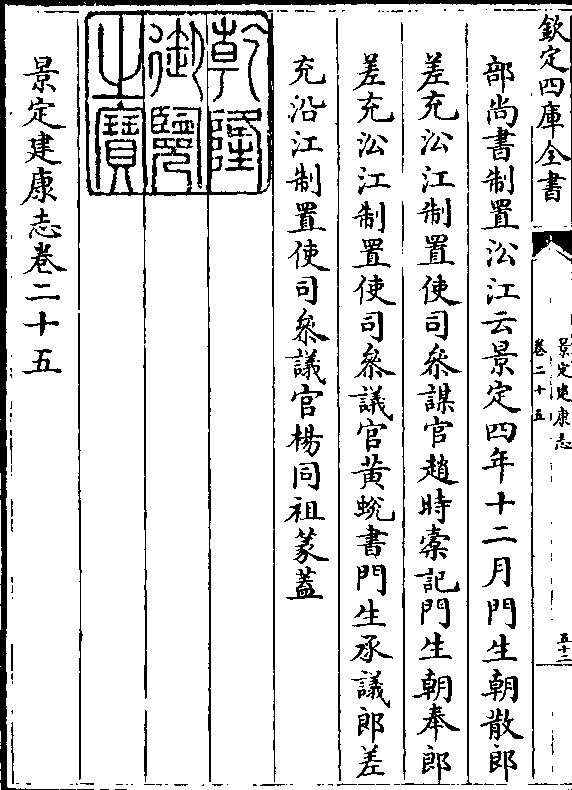 欽定四庫全書
景定建康志
卷二十五
五十二
部尚書制置㳂江云景定四年十二月門生朝散郎
差充㳂江制置使司叅謀官趙時橐記門生朝奉郎
差充㳂江制置使司叅議官黄蜕書門生承議郎差
充沿江制置使司叅議官楊同祖篆蓋
乾隆
御覽
之寶
景定建康志卷二十五